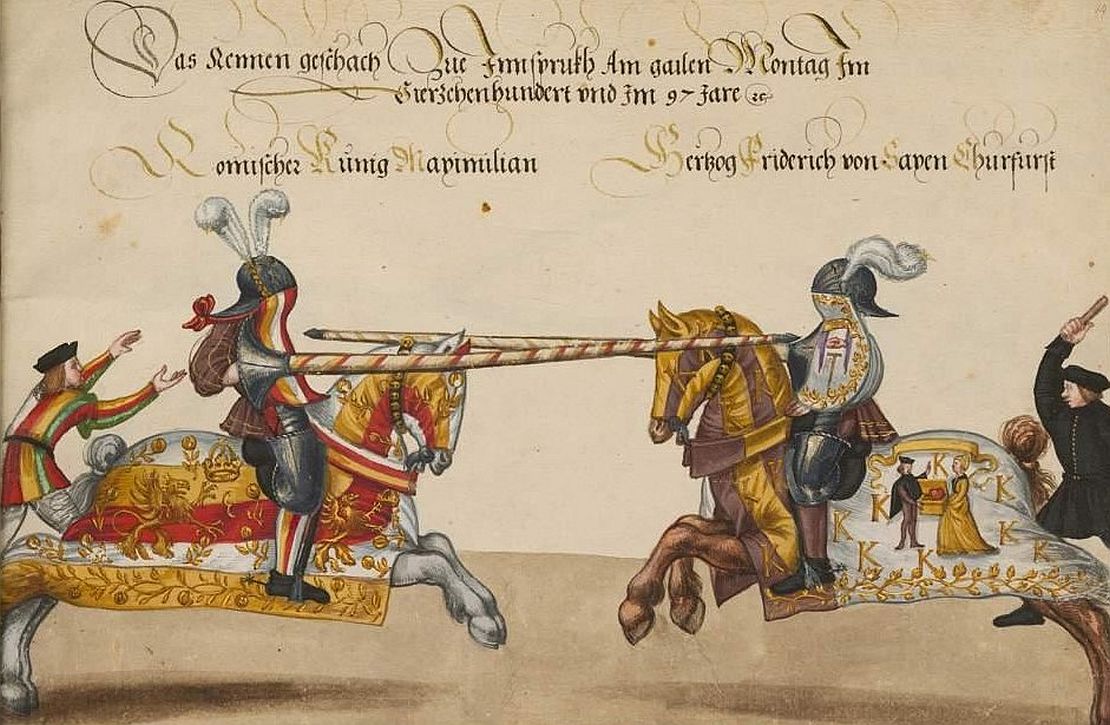 Das Rennen geschach Zue Innsprukh Am gailen Montag Im
Vierzehenhundert vnd Im 97 Jare ꝛc
Römischer Kunig Maximilian
Hertzog Friderich von Saxen Churfurst
K K K K K K K K K